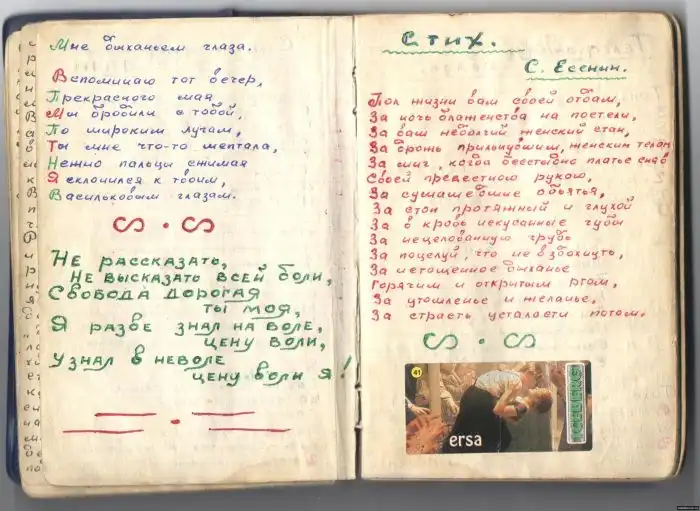 Мне дыханьем глаза.
Вспоминаю тот вечер,
Прекрасного мая
Мы бродили с тобой,
По широким лучам,
Ты мне что-то шептала,
Нежно пальцы сжимая
Я склонился к твоим,
Васильковым глазам.
Не рассказать,
Не высказать всей боли,
Свобода дорогая
ты моя,
Я разве знал на воле,
цену воли,
Узнал в неволе
цену воли я!
Стих.
С. Есенин.
Пол жизни вам своей отдам,
За ночь блаженства на постели,
За ваш недолгий женский стан,
За дрожь прильнувшим, женским телам
За миг, когда бесстыдно платье сняв
Своей прелестною рукою,
За сумашедшие обьятья,
За стон протяжный и глухой
За в кровь искусанные губы
За нецелованную грудь
За поцелуй, что не вздохнуть,
За истощенное дыханье
Горячим и открытым ртом,
За утомленье и желанье,
За страсть усталости потом.
41
ersa